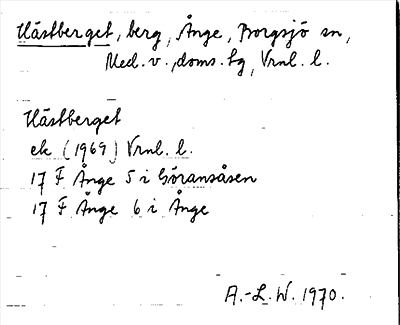 Hästberget, berg, Ånge, Borgsjö sn,
Med. v. doms. tg, Vrnl. l.
Hästberget
ek (1969) Vrnl. l.
17 F Ånge 5 i Göransåsen
17 F Ånge 6 i Ånge
A.-L. W. 1970.